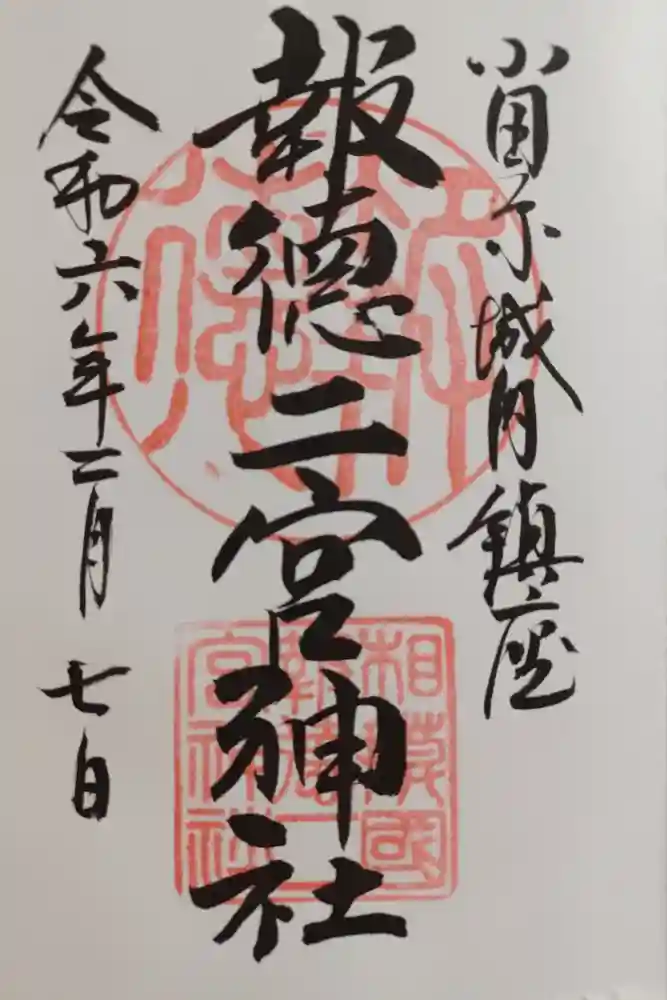 小田原城内鎮座
報徳二宮神社
令和六年二月七日
相模國
報徳二
宮神社